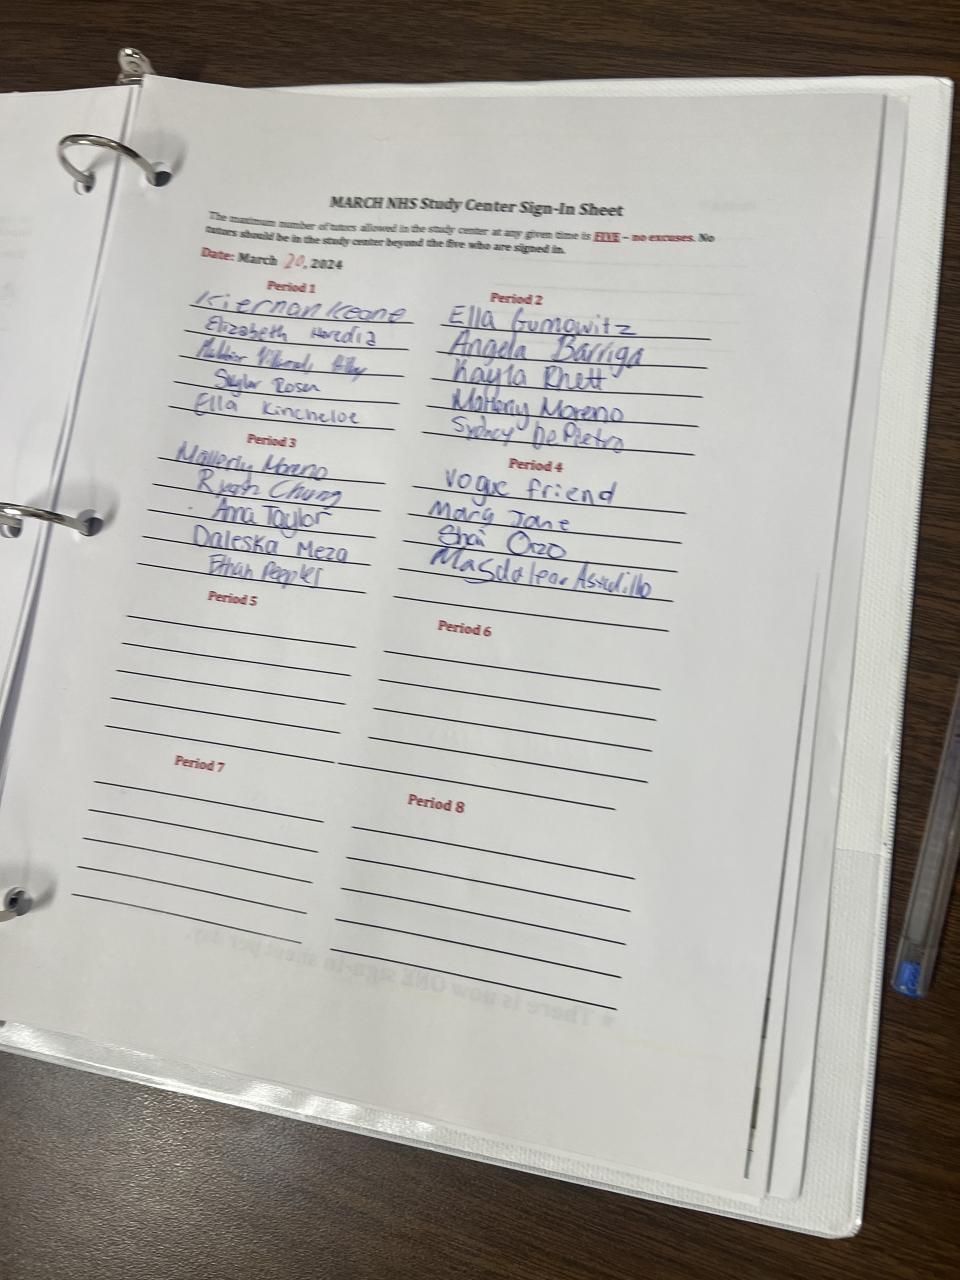 MARCH NHS Study Center Sign-In Sheet
The maximum number of tutors allowed in the study center at any given time is FIVE – no excuses. No
tutors should be in the study center beyond the five who are signed in.
Date: March 20, 2024
Period 1
Kiernan Keane
Elizabeth Heredia
Skylar Rosen
Ella Kincheloe
Period 2
Ella Gumowitz
Angela Barriga
Kayla Rhett
Mallory Moreno
Sydney DePietro
Period 3
Mallory Moreno
Ryan Chung
Ana Taylor
Daleska Meza
Ethan
Period 4
Vogue friend
Mary Jane
Shai
Astudillo
Period 5
Period 6
Period 7
Period 8
There is now ONE sign-in sheet per day.